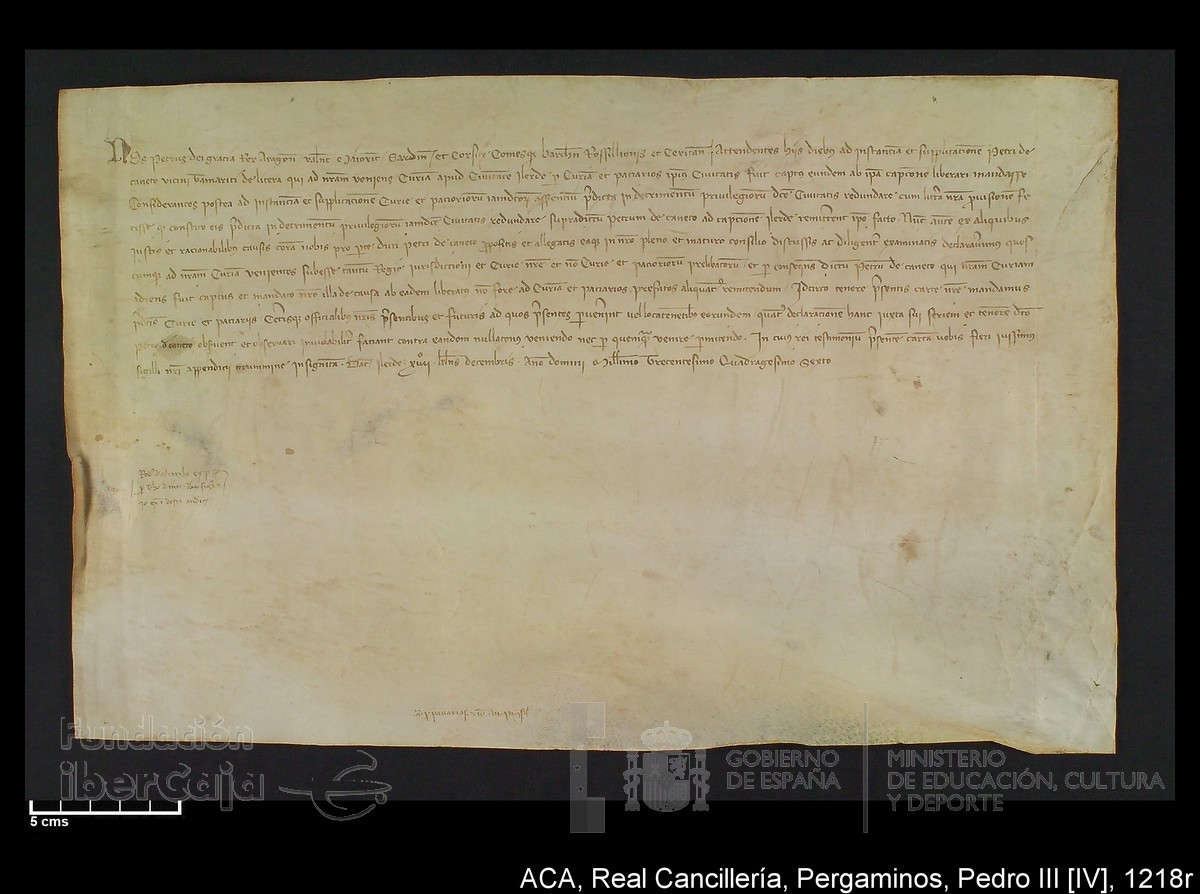 Nos Petrus dei gracia Rex Aragon Valent Maioric Sardin et Corsice Comesq Barchn Rossilionis et Ceritan Attendentes hiis diebus ad instancia et supplicacione Petri de
caneto vicini de litera qui ad nram veniens Curia apud Civitate Ilerde p Curia et paciarios ipius Civitatis fuit captus eundem ab ipa capcione liberari mandasse
Considerantes postea ad instancia et supplicacione Curie et paciarior iamdcor pdicta in detrimentu privilegioru dce Civitatis redundare cum lra nra fe
cisse q constito eis pdicta in detrimentu privilegioru iamdce Civitatis redundare supradictu Petrum de caneto ad capcione Ilerde remitterent ipo facto Nuc aute ex aliquibus
iustis et racionabilibus causis cora nobis pro pte dicti Petri de caneto ppositis et allegatis eaq in nro pleno et maturo consilio discussis ac diligent examinatis declaravimus quos
cumq ad nram Curia venientes subesse tantu Regie iurisdictioni et Curie nre et no Curie et paciarioru et p conseqns dictu Petru de caneto qui nram Curiam
adiens fuit captus et mandato nro illa de causa ab eadem liberatus no fore ad Curia et paciarios prefatos aliquat remittendum Idcirco tenore psentis carte nre mandamus
Curie et paciariis Ceterisq officialibus nris psentibus et futuris ad quos psentes pvenint vel locatenetibus eorundem quat declaratione hanc iuxta sui seriem et tenore dco
Petro de caneto observent et observari inviolabilit faciant contra eandem nullatenus veniendo nec p quempia venire pmittendo In cuius rei testimoniu psente carta vobis fieri iussimus
sigilli nri appendicii munimine insignita Dat Ilerde xviii klns decembris Anno domini Millimo Trecentesimo Quadragesimo Sexto
Fundación
iberCaja
GOBIERNO
DE ESPAÑA
MINISTERIO
DE EDUCACIÓN, CULTURA
Y DEPORTE
5 cms
ACA, Real Cancillería, Pergaminos, Pedro III [IV], 1218r